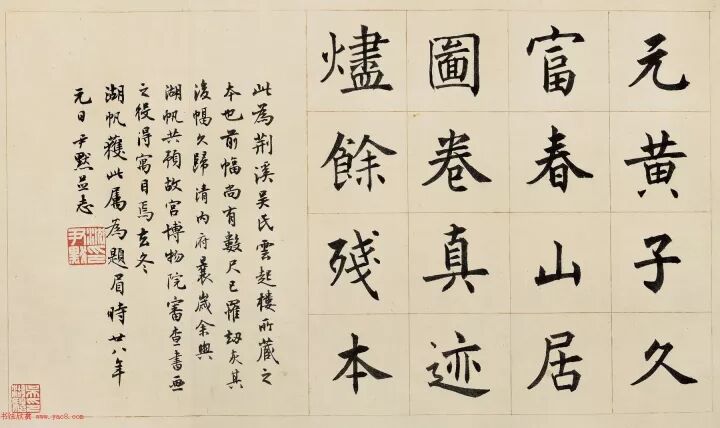 元黃子久
富春山居
圖卷真迹
燼餘殘本
此為荆溪吴氏雲起樓所藏之
本也前幅尚有數尺已罹劫矣其
後幅久歸清内府曩歲余與
湖帆共預故宮博物院審查書画
之役得寓目焉去冬
湖帆獲此属為題眉時廿八年
元日尹默並志
书法欣赏 www.yac8.com